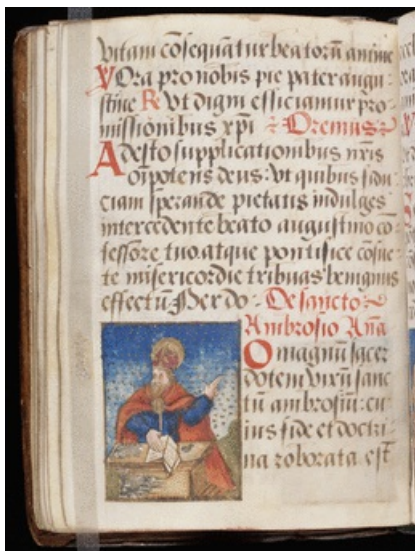 vitam cōsequātur beatorū anime
V Ora pro nobis pie pater augu
stine R Vt digni efficiamur pro
missionibus xp̄i Oremus
Adesto supplicationibus nr̄is
oīpotens deus: vt quibus fidu
ciam sperande pietatis indulges
intercedente beato augustino cō
fessore tuo atque pontifice cōsue
te misericordie tribuas benignus
effectū Per do De sancto
Ambrosio Añā
O magnū sacer
dotem virū sanc
tū ambrosiū: cu
ius fide et doctri
na roborata est